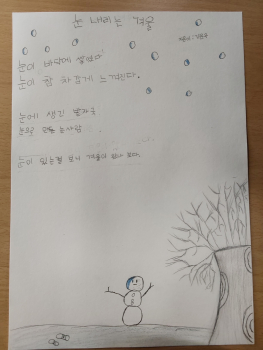 눈 내리는 겨울
눈이 바닥에 쌓였다
눈이 참 차갑게 느껴진다.
눈에 생긴 발자국
눈으로 만든 눈사람
눈이 있는걸 보니 겨울이 왔나 보다.